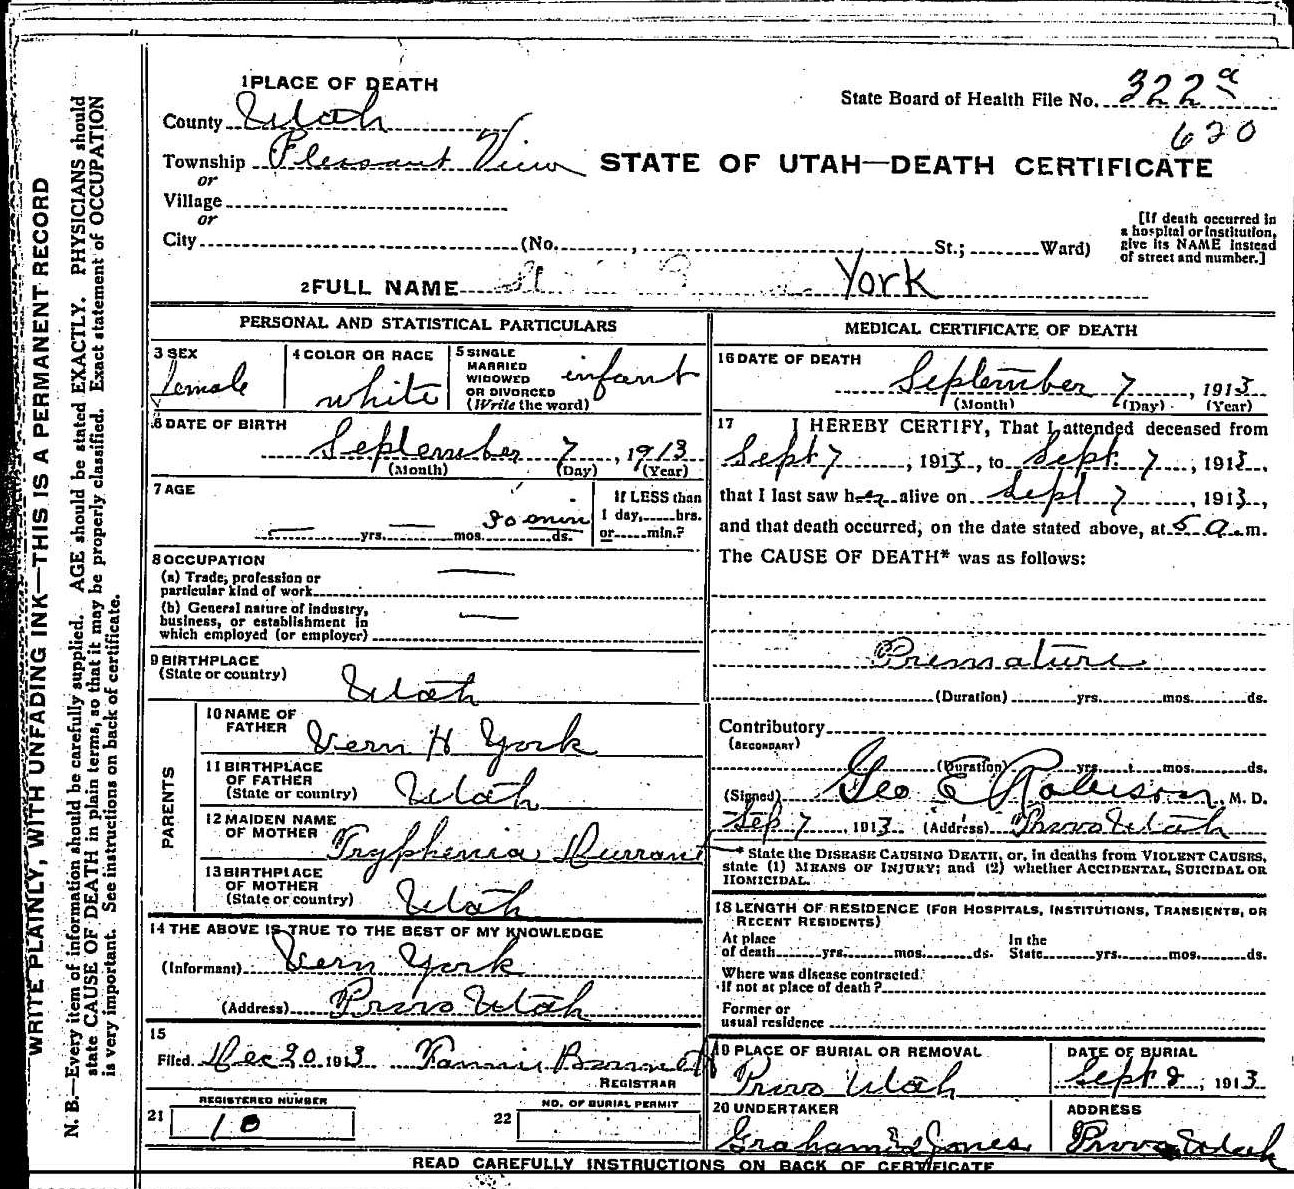 1 PLACE OF DEATH
State Board of Health File No. 322 a
620
County Utah
Township Pleasant View
STATE OF UTAH—DEATH CERTIFICATE
or
Village
or
City (No. , St.; Ward)
[If death occurred in
a hospital or institution,
give its NAME instead
of street and number.]
2 FULL NAME York
PERSONAL AND STATISTICAL PARTICULARS
3 SEX
Female
4 COLOR OR RACE
white
5 SINGLE
MARRIED
WIDOWED
OR DIVORCED
(Write the word)
infant
6 DATE OF BIRTH
September 7, 1913
(Month) (Day) (Year)
7 AGE
— yrs. — mos. 30 min ds.
If LESS than
1 day, hrs.
or min.?
8 OCCUPATION
(a) Trade, profession or
particular kind of work —
(b) General nature of industry,
business, or establishment in
which employed (or employer) —
9 BIRTHPLACE
(State or country)
Utah
PARENTS
10 NAME OF
FATHER
Vern H York
11 BIRTHPLACE
OF FATHER
(State or country)
Utah
12 MAIDEN NAME
OF MOTHER
Tryphenia Durrant
13 BIRTHPLACE
OF MOTHER
(State or country)
Utah
14 THE ABOVE IS TRUE TO THE BEST OF MY KNOWLEDGE
(Informant) Vern York
(Address) Provo Utah
15
Filed Dec 20 1913 Fannie Barnett
REGISTRAR
REGISTERED NUMBER
21 10
NO. OF BURIAL PERMIT
22
MEDICAL CERTIFICATE OF DEATH
16 DATE OF DEATH
September 7, 1913
(Month) (Day) (Year)
17 I HEREBY CERTIFY, That I attended deceased from
Sept 7, 1913, to Sept. 7, 1913,
that I last saw her alive on Sept 7, 1913,
and that death occurred, on the date stated above, at 5 a.m.
The CAUSE OF DEATH* was as follows:
Premature
(Duration) yrs. mos. ds.
Contributory
(SECONDARY)
(Duration) yrs. mos. ds.
(Signed) Geo E Robison, M. D.
Sep 7, 1913 (Address) Provo Utah
* State the DISEASE CAUSING DEATH, or, in deaths from VIOLENT CAUSES,
state (1) MEANS OF INJURY; and (2) whether ACCIDENTAL, SUICIDAL OR
HOMICIDAL.
18 LENGTH OF RESIDENCE (FOR HOSPITALS, INSTITUTIONS, TRANSIENTS, OR
RECENT RESIDENTS)
At place
of death yrs. mos. ds.
In the
State yrs. mos. ds.
Where was disease contracted.
If not at place of death?
Former or
usual residence
19 PLACE OF BURIAL OR REMOVAL
Provo Utah
DATE OF BURIAL
Sept 8, 1913
20 UNDERTAKER
Graham & Jones
ADDRESS
Provo Utah
READ CAREFULLY INSTRUCTIONS ON BACK OF CERTIFICATE
WRITE PLAINLY, WITH UNFADING INK—THIS IS A PERMANENT RECORD
N. B.—Every item of information should be carefully supplied. AGE should be stated EXACTLY. PHYSICIANS should
state CAUSE OF DEATH in plain terms, so that it may be properly classified. Exact statement of OCCUPATION
is very important. See instructions on back of certificate.